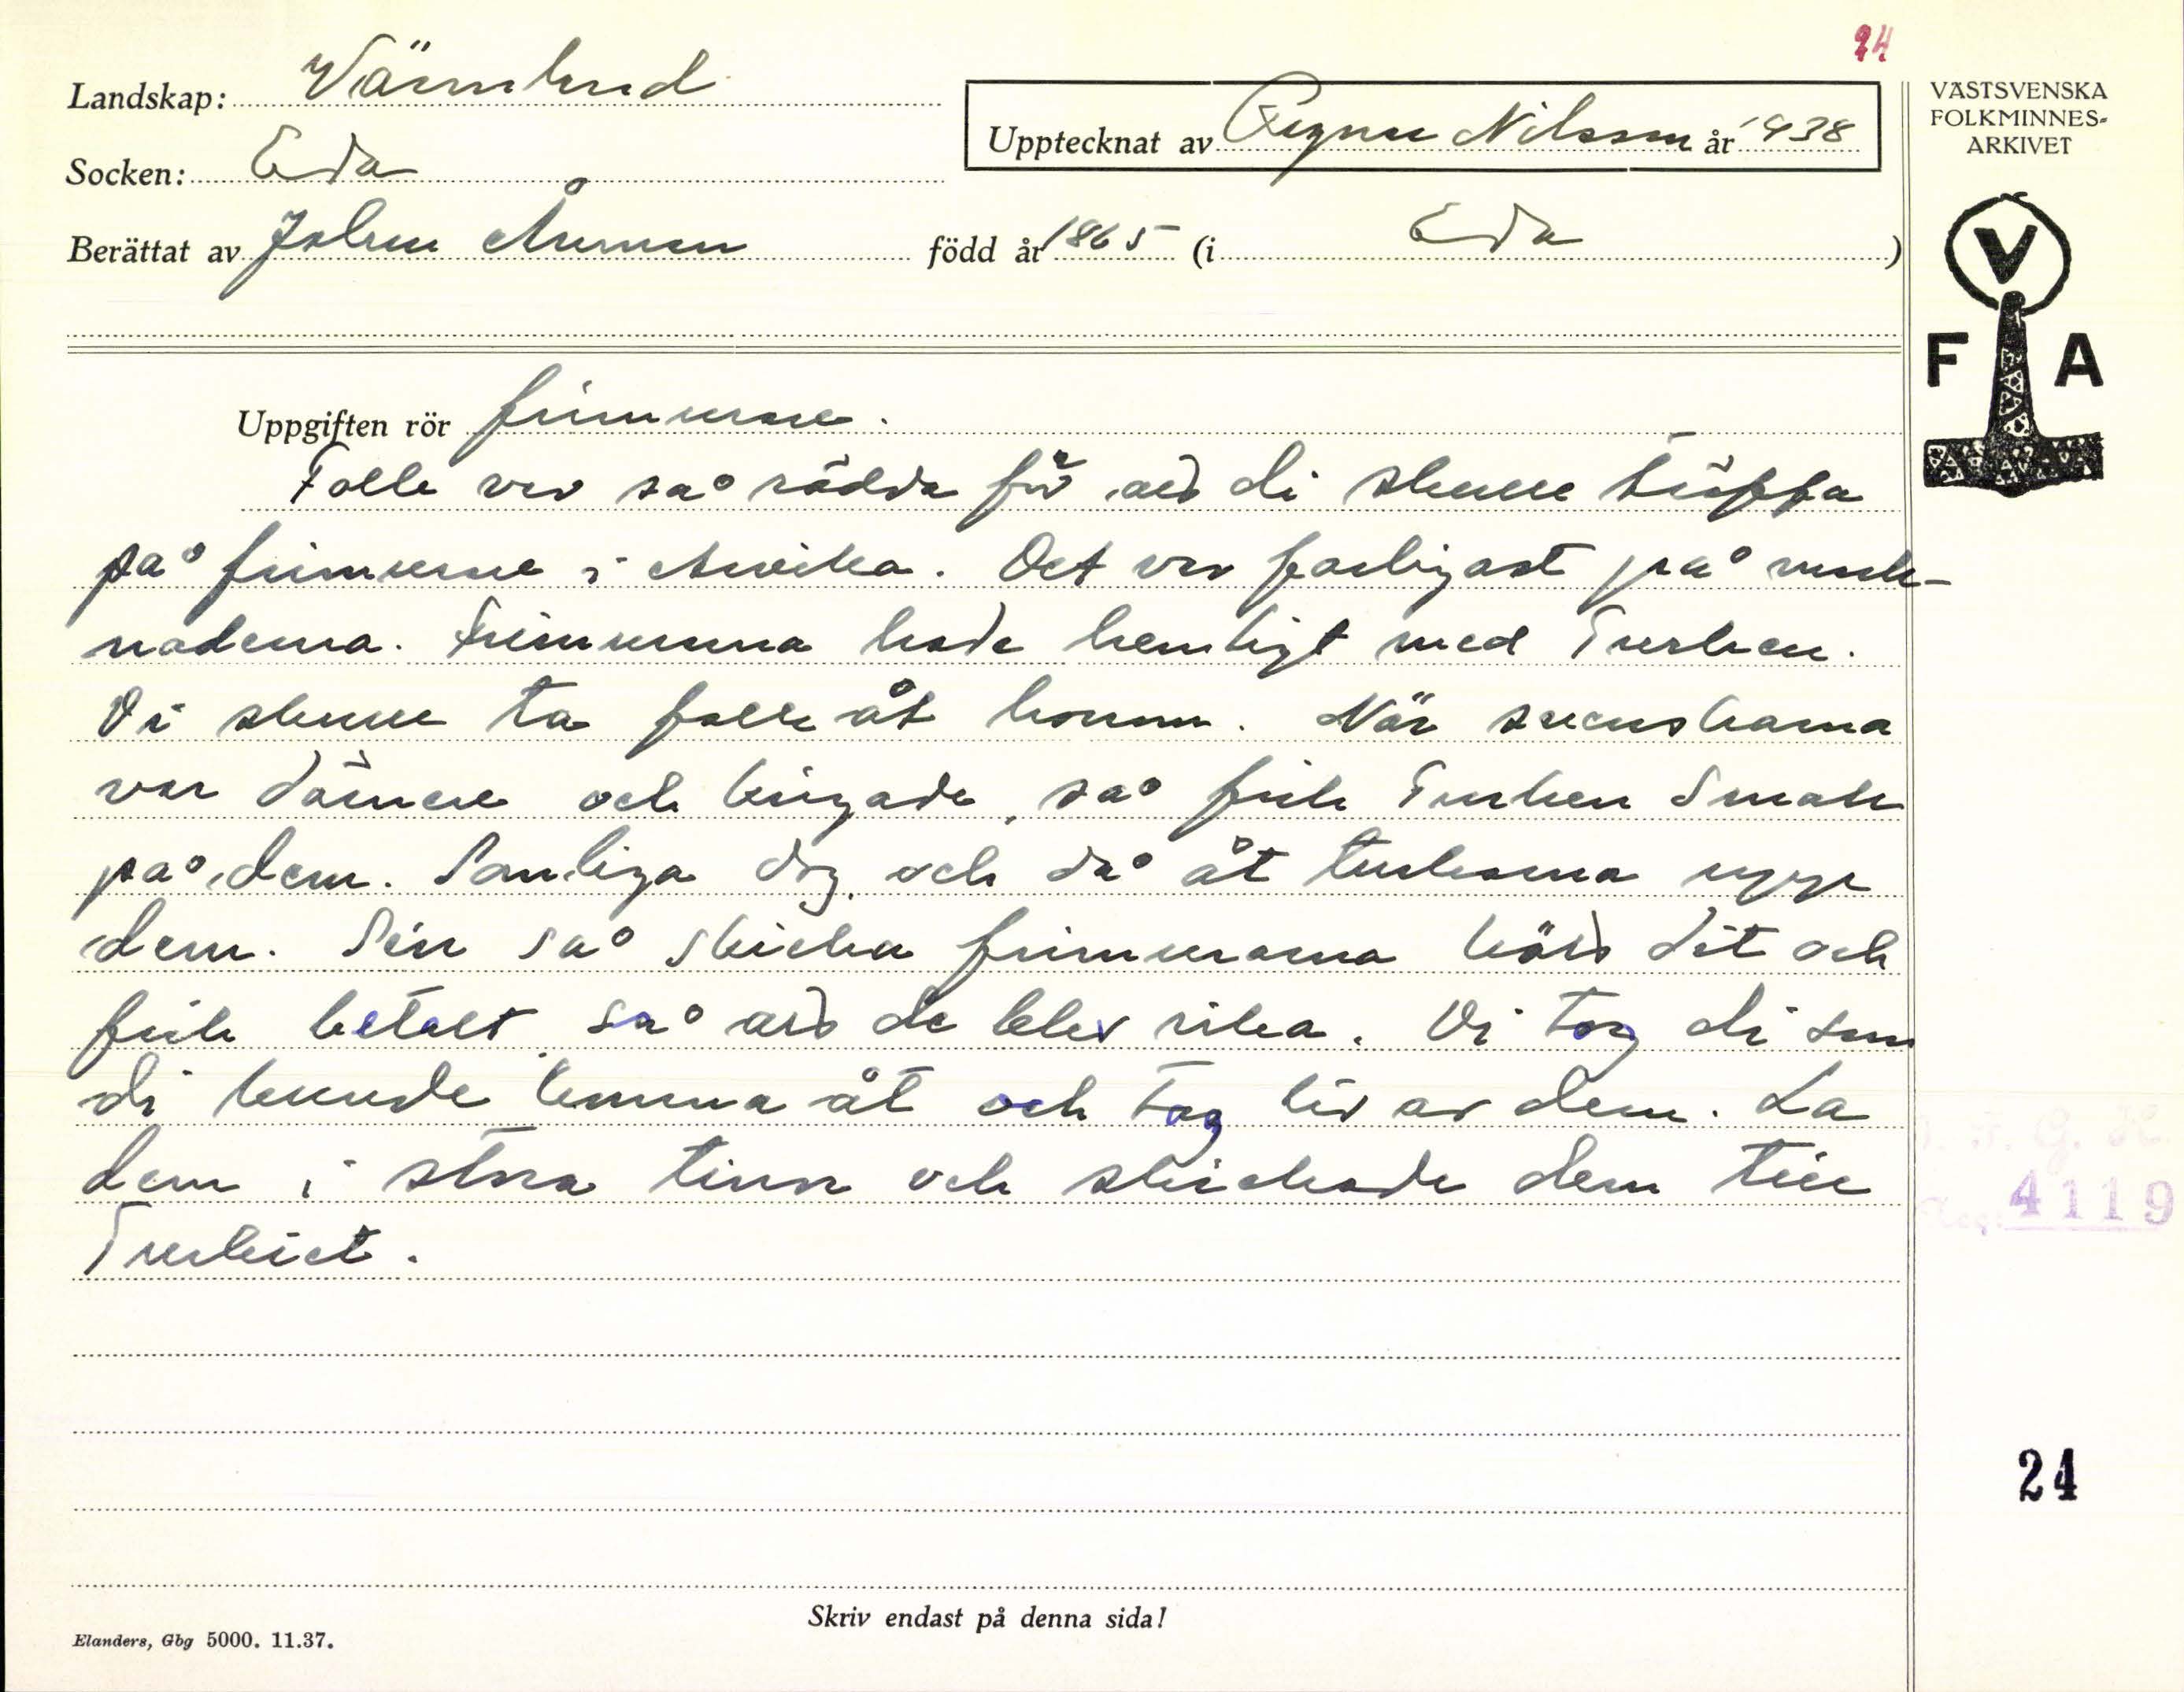 24
Landskap: Värmland
VÄSTSVENSKA
FOLKMINNES-
ARKIVET
Upptecknat av Ragnar Nilsson år 1938
Socken: Eda
Berättat av Johan född år 1865 (i Eda)
V
F A
Uppgiften rör frimurare.
Folk var så rädda för att di skulle träffa
på frimurare i Arvika. Det var farligast på mark-
naderna. Frimurarna hade hemligt med Turken.
Di skulle ta folk åt honom. När svenskarna
var där och krigade, så fick Turken smak
på dem. Somliga dog och då åt turkarna upp
dem. Sen så skicka frimurarna kött dit och
fick betalt så att de blev rika. Di tog di som
di kunde komma åt och tog liv av dem. La
dem i stora tinor och skickade dem till
Turkiet.
4119
24
Skriv endast på denna sida!
Elanders, Gbg 5000. 11.37.